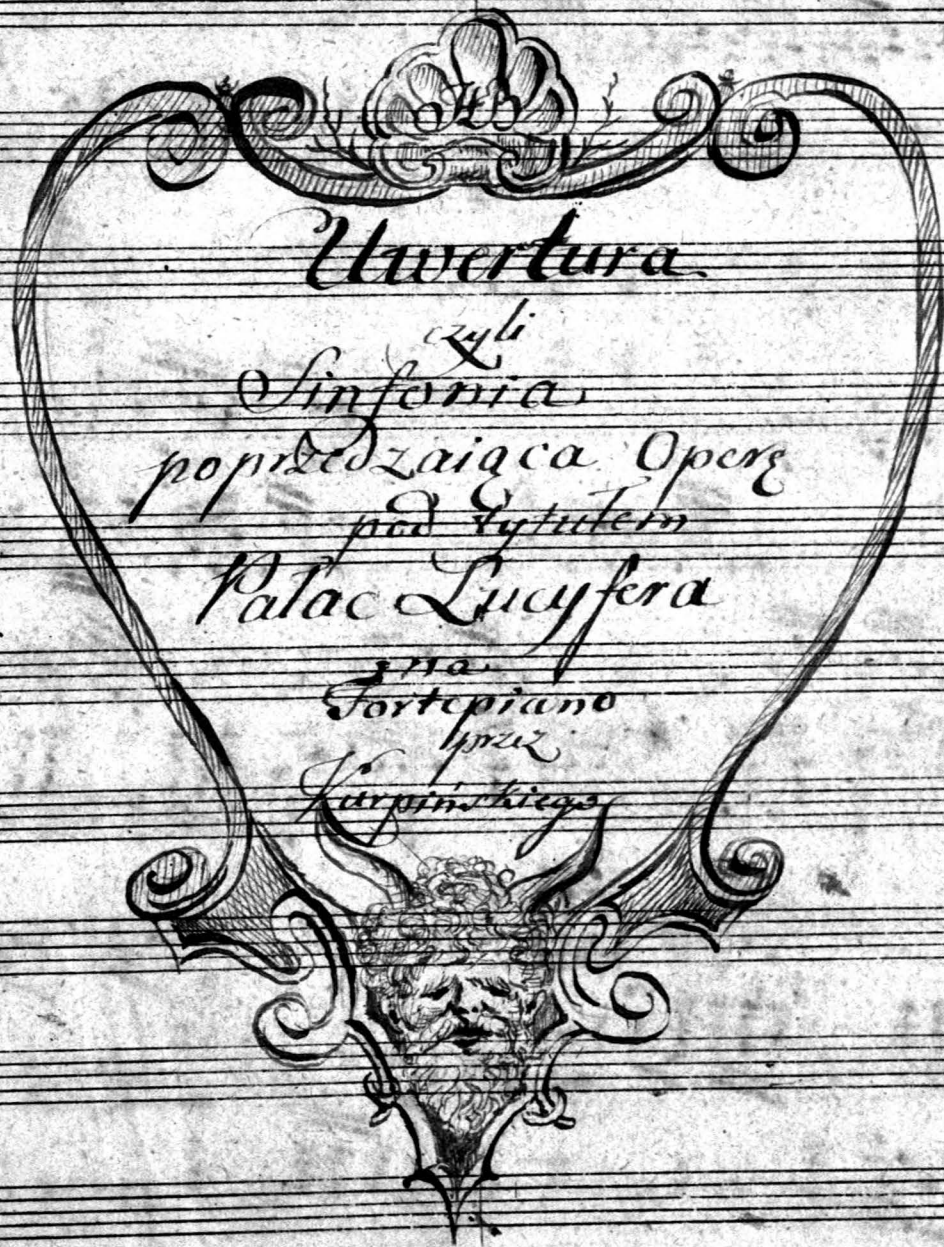 Uwertura
czyli
Sinfonia
poprzedzaiąca Operę
pod tytułem
Pałac Lucyfera
na
Fortepiano
przez
Kurpińskiego